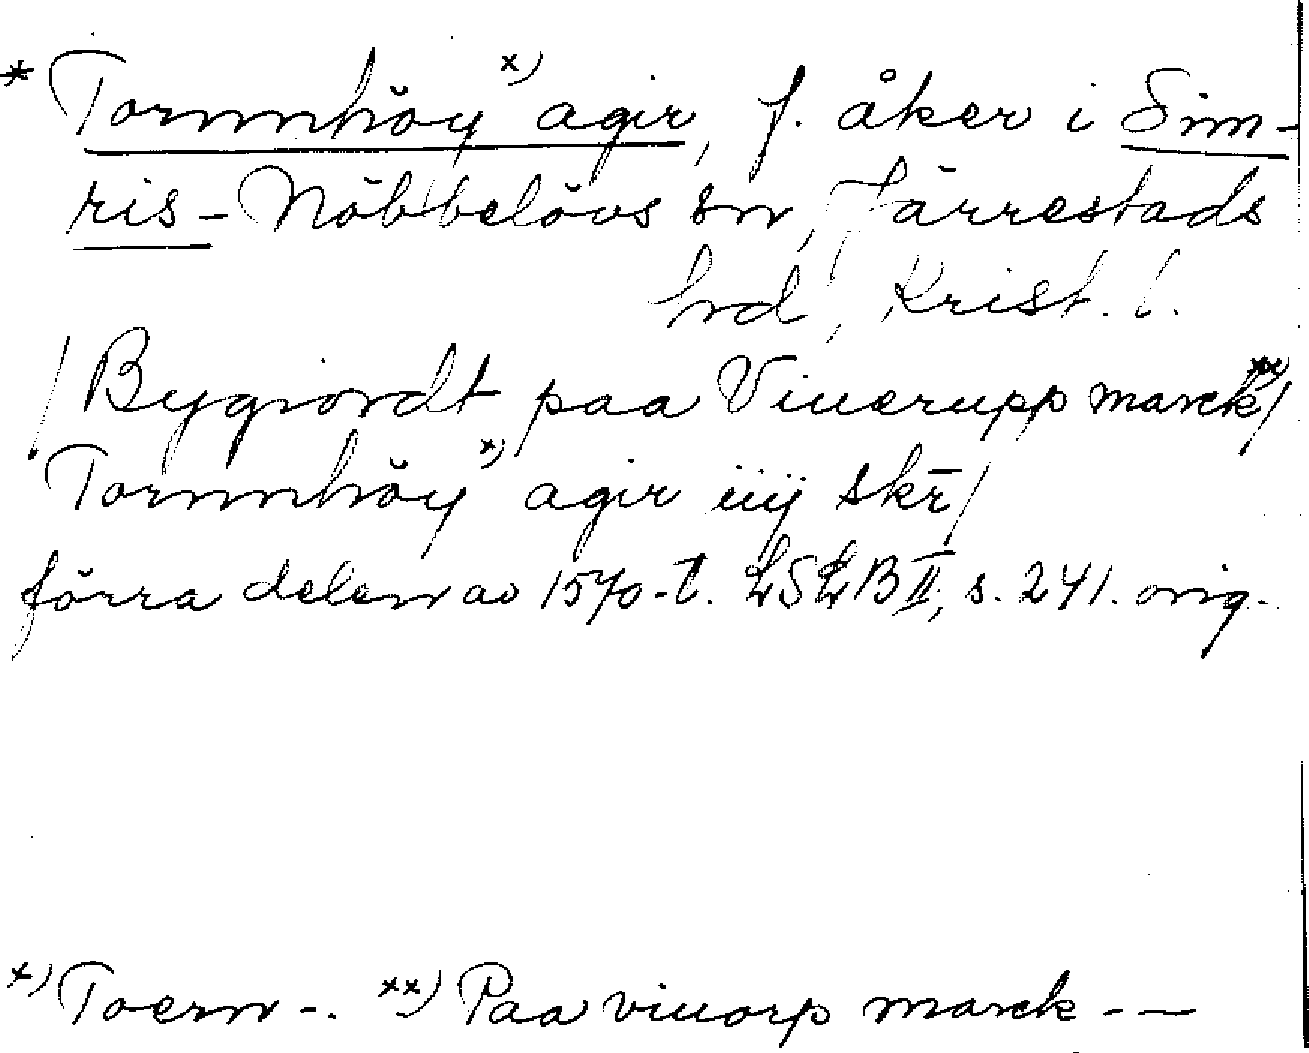 * Tornnhöy x) agir, f. åker i Sim-
ris-Nöbbelövs sn, Järrestads
hrd, Krist. l.
/Bygiordt paa Viuerupp marck xx)/
Tornnhöy x) agir iiij skr̄/
förra delen av 1570-t. LSLB II, s. 241. orig.
x) Toern-. xx) Paa viuorp marck - —